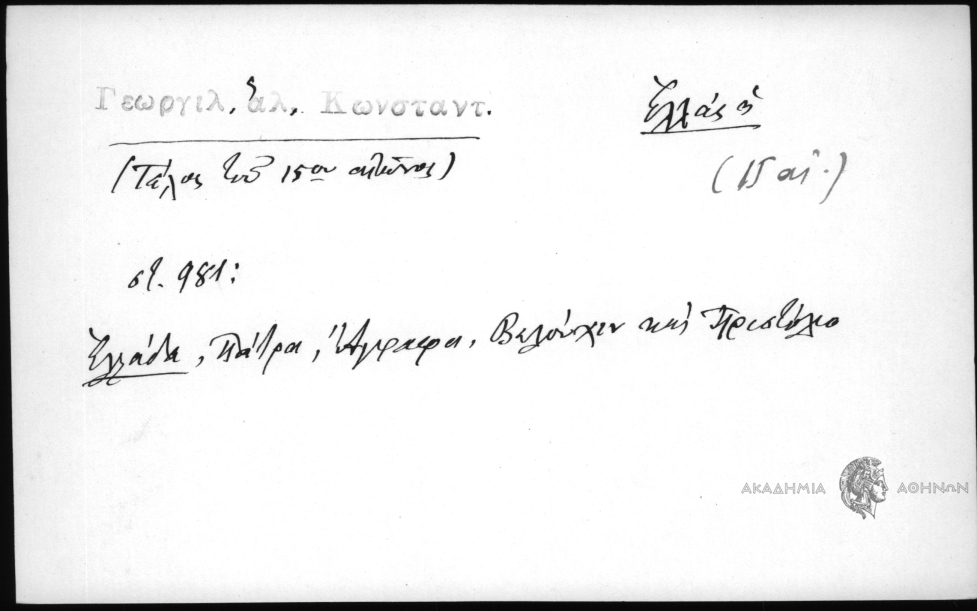 Γεωργιλ, ἁλ, Κωνσταντ.
Ἑλλάς ἡ
(Τέλος τοῦ 15ου αἰῶνος)
(15 αἰ.)
στ. 981:
Ἑλλάδα, Πάτρα, Ἄγραφα, Βελούχιν καὶ Πρωτόλιο
ΑΚΑΔΗΜΙΑ ΑΘΗΝΩΝ